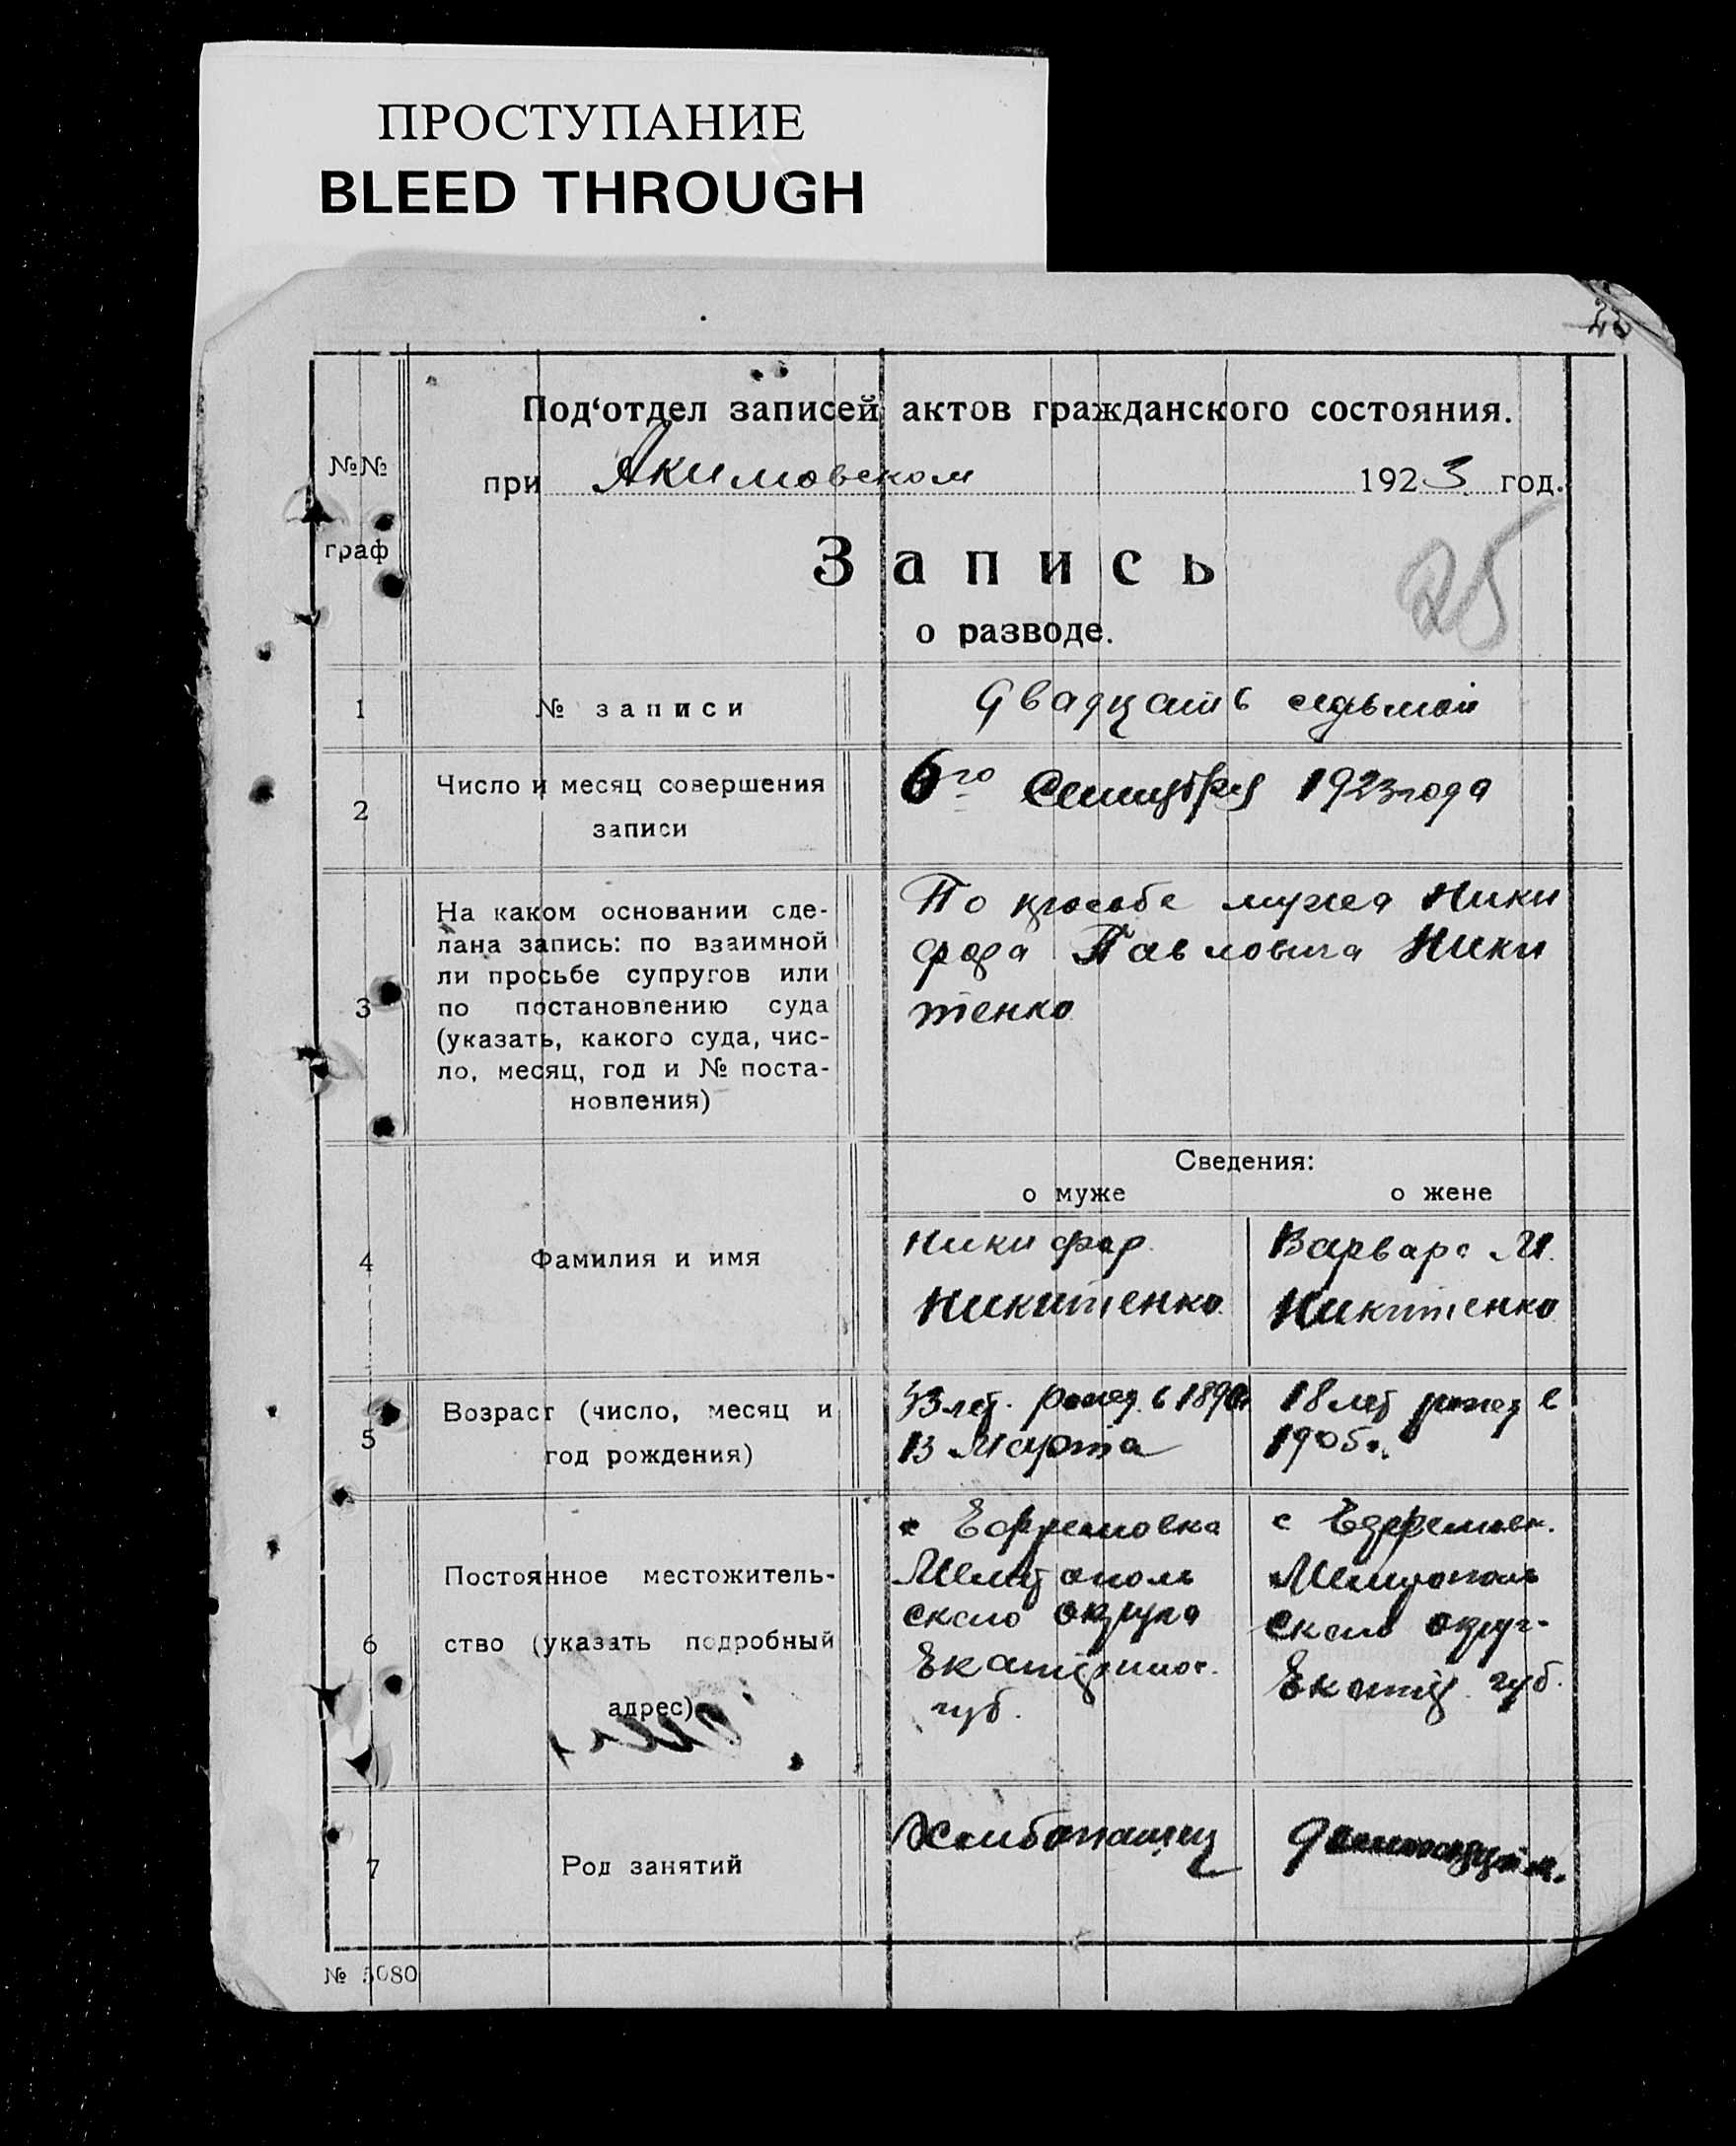 ПРОСТУПАНИЕ
BLEED THROUGH
Под‘отдел записей актов гражданского состояния.
№№
граф
при Акимовском 1923 год.
Запись
о разводе.
25
1
№ записи
Двадцать седьмой
2
Число и месяц совершения
записи
6го Сентября 1923 года
3
На каком основании сде-
лана запись: по взаимной
ли просьбе супругов или
по постановлению суда
(указать, какого суда, чис-
ло, месяц, год и № поста-
новления)
По просьбе мужа Ники
фора Павловича Ники
тенко
Сведения:
о муже
о жене
4
Фамилия и имя
Никифор
Никитенко
Варвара М.
Никитенко
5
Возраст (число, месяц и
год рождения)
33 лет. рожд. в 1890г
13 Марта
18 лет рожд в
1905г.
6
Постоянное местожитель-
ство (указать подробный
адрес)
с Ефремовка
Мелитополь
ского округа
Екатеринос.
губ.
с Ефремовк.
Мелитополь
ского округ.
Екатер. губ.
7
Род занятий
Хлебопашец
№ 5080